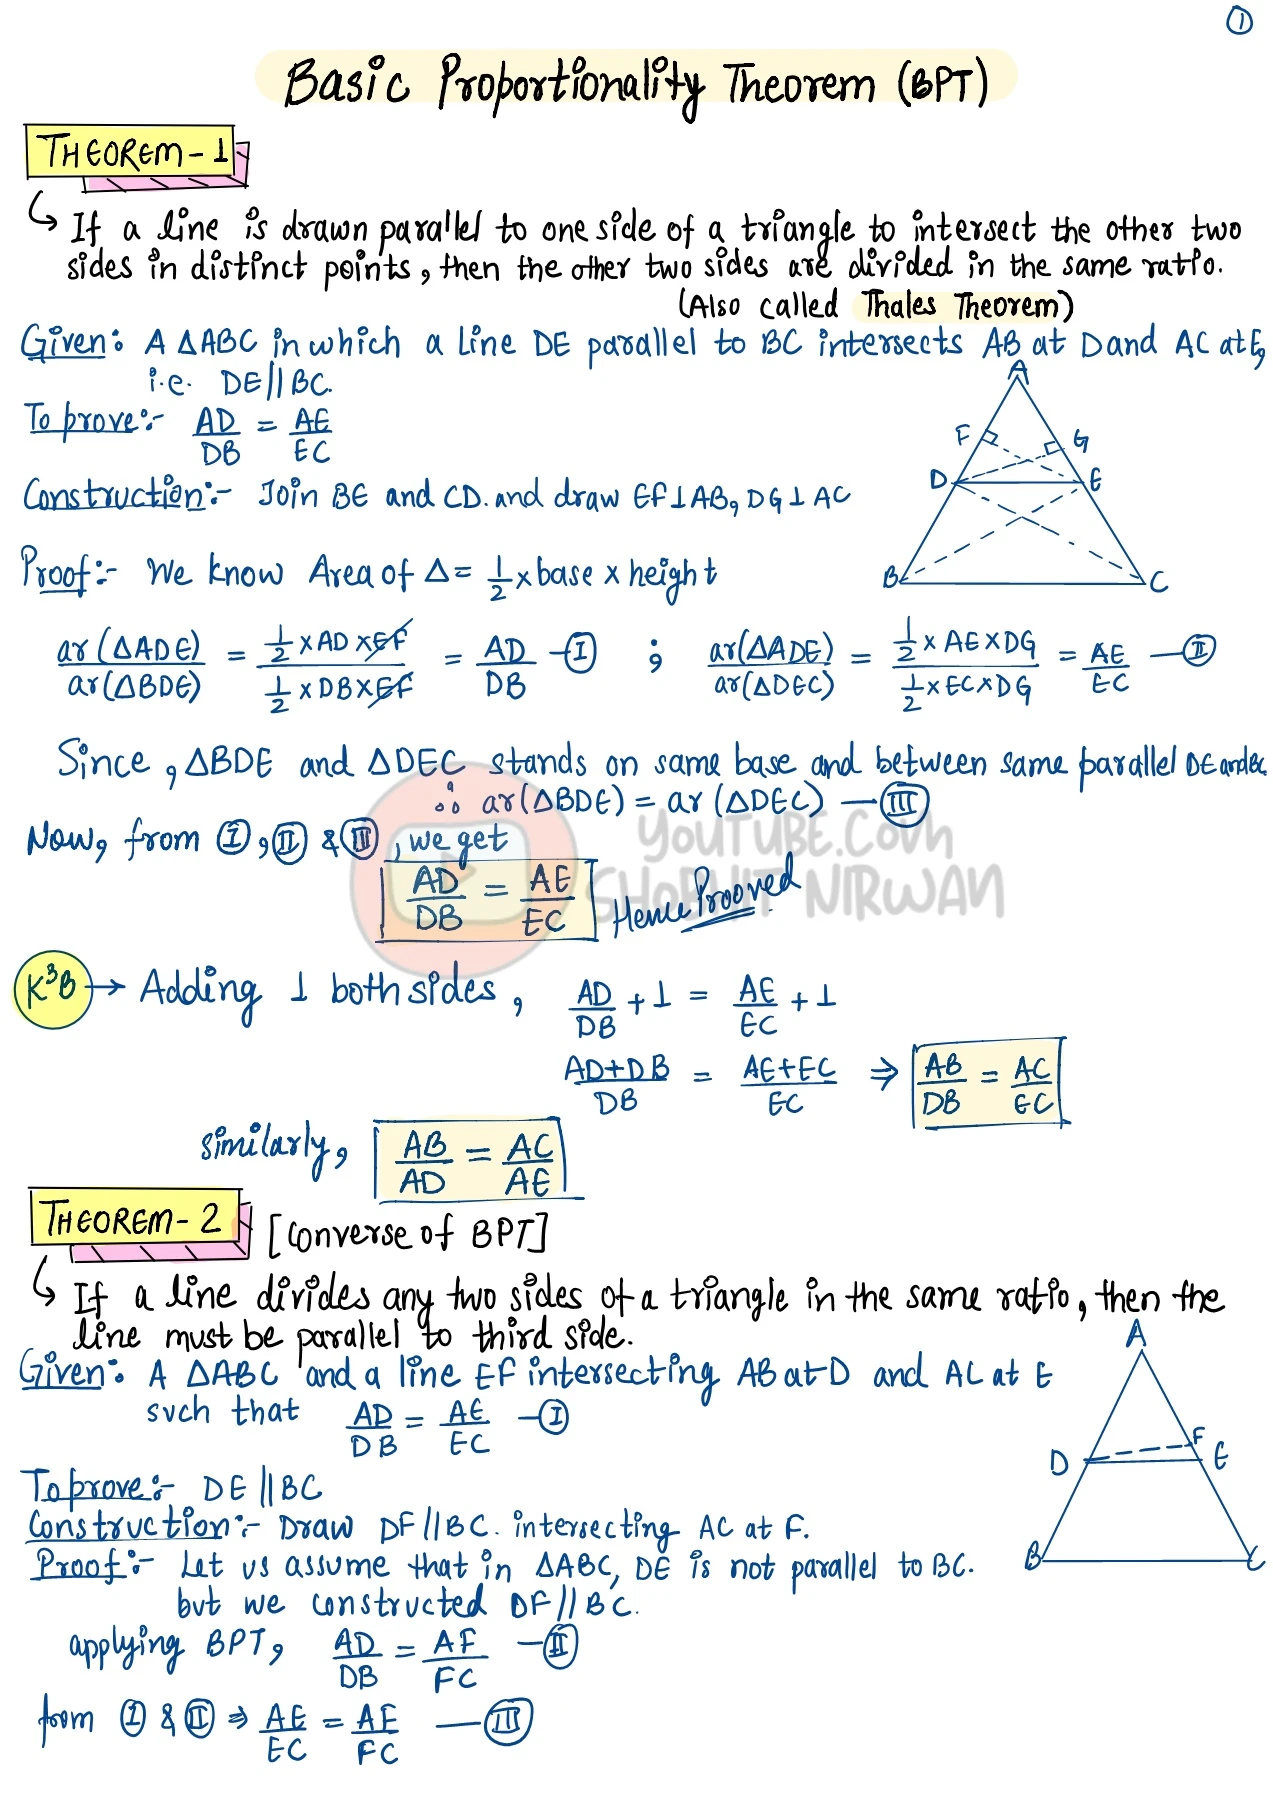 ①
Basic Proportionality Theorem (BPT)
THEOREM-1
↳ If a line is drawn parallel to one side of a triangle to intersect the other two
sides in distinct points, then the other two sides are divided in the same ratio.
(Also called Thales Theorem)
Given: A △ABC in which a Line DE parallel to BC intersects AB at D and AC at E,
i.e. DE||BC.
To prove:- AD/DB = AE/EC
Construction:- Join BE and CD. and draw EF⊥AB, DG⊥AC
A
F G
D E
B C
Proof:- We know Area of △ = 1/2 × base × height
ar(△ADE)/ar(△BDE) = (1/2 × AD × EF)/(1/2 × DB × EF) = AD/DB —Ⓘ ; ar(△ADE)/ar(△DEC) = (1/2 × AE × DG)/(1/2 × EC × DG) = AE/EC —Ⅱ
Since, △BDE and △DEC stands on same base and between same parallel DE and BC
∴ ar(△BDE) = ar(△DEC) —Ⅲ
Now, from Ⅰ, Ⅱ & Ⅲ, we get
AD/DB = AE/EC Hence Prooved
YOUTUBE.COM
SHOBHIT NIRWAN
K³B → Adding 1 both sides, AD/DB + 1 = AE/EC + 1
AD+DB/DB = AE+EC/EC ⇒ AB/DB = AC/EC
Similarly, AB/AD = AC/AE
THEOREM-2 [Converse of BPT]
↳ If a line divides any two sides of a triangle in the same ratio, then the
line must be parallel to third side.
Given: A △ABC and a line EF intersecting AB at D and AC at E
such that AD/DB = AE/EC —Ⅰ
A
D F E
B C
To prove:- DE||BC
Construction:- Draw DF||BC. intersecting AC at F.
Proof:- Let us assume that in △ABC, DE is not parallel to BC.
but we constructed DF||BC.
applying BPT, AD/DB = AF/FC —Ⅱ
from Ⅰ & Ⅱ ⇒ AE/EC = AF/FC —Ⅲ